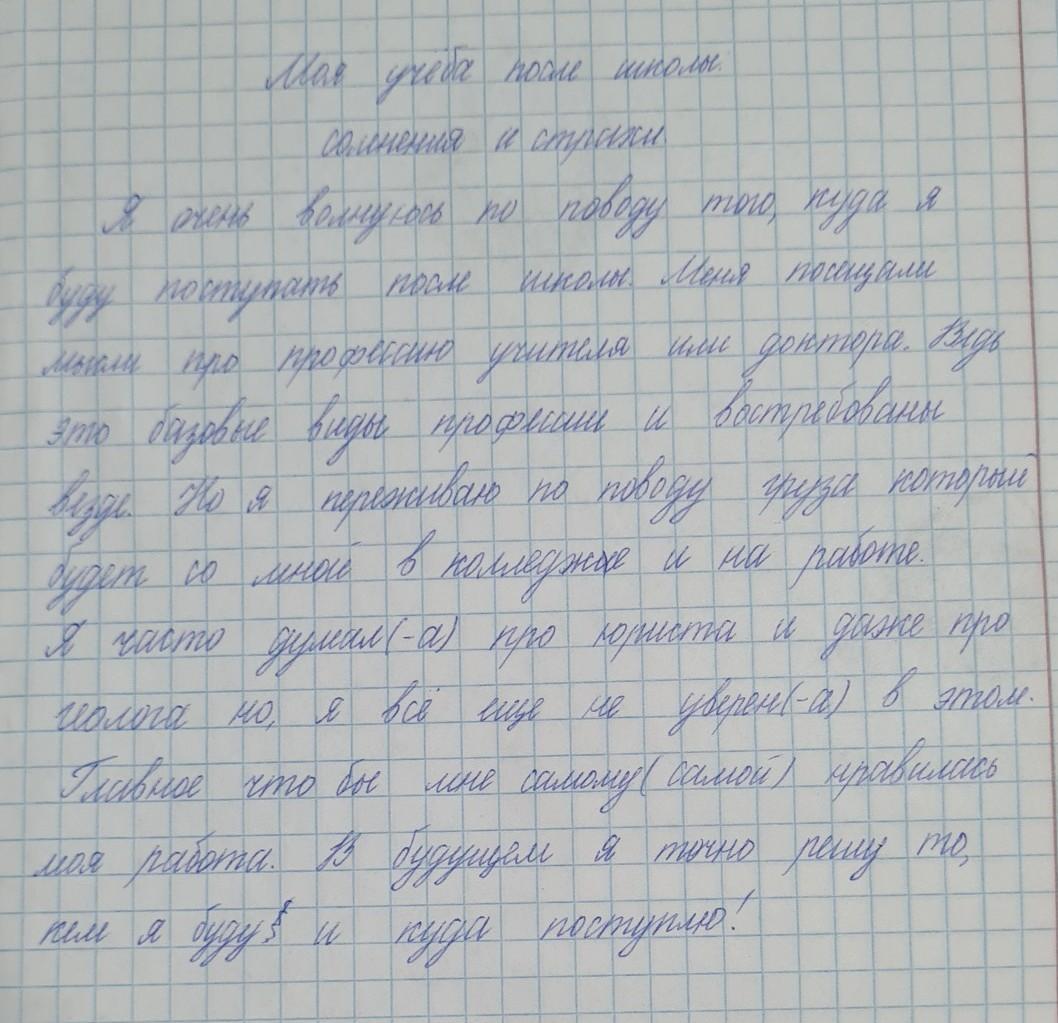 Моя учёба после школы.
сомнения и страхи.
Я очень волнуюсь по поводу того, куда я
буду поступать после школы. Меня посещали
мысли про профессию учителя или доктора. Ведь
это базовые виды професии и востребованы
везде. Но я переживаю по поводу груза который
будет со мной в колледже и на работе.
Я часто думал(-а) про юриста и даже про
геолога но, я всё еще не уверен(-а) в этом.
Главное что бы мне самому(самой) нравилась
моя работа. В будущем я точно решу то,
кем я буду и куда поступлю!